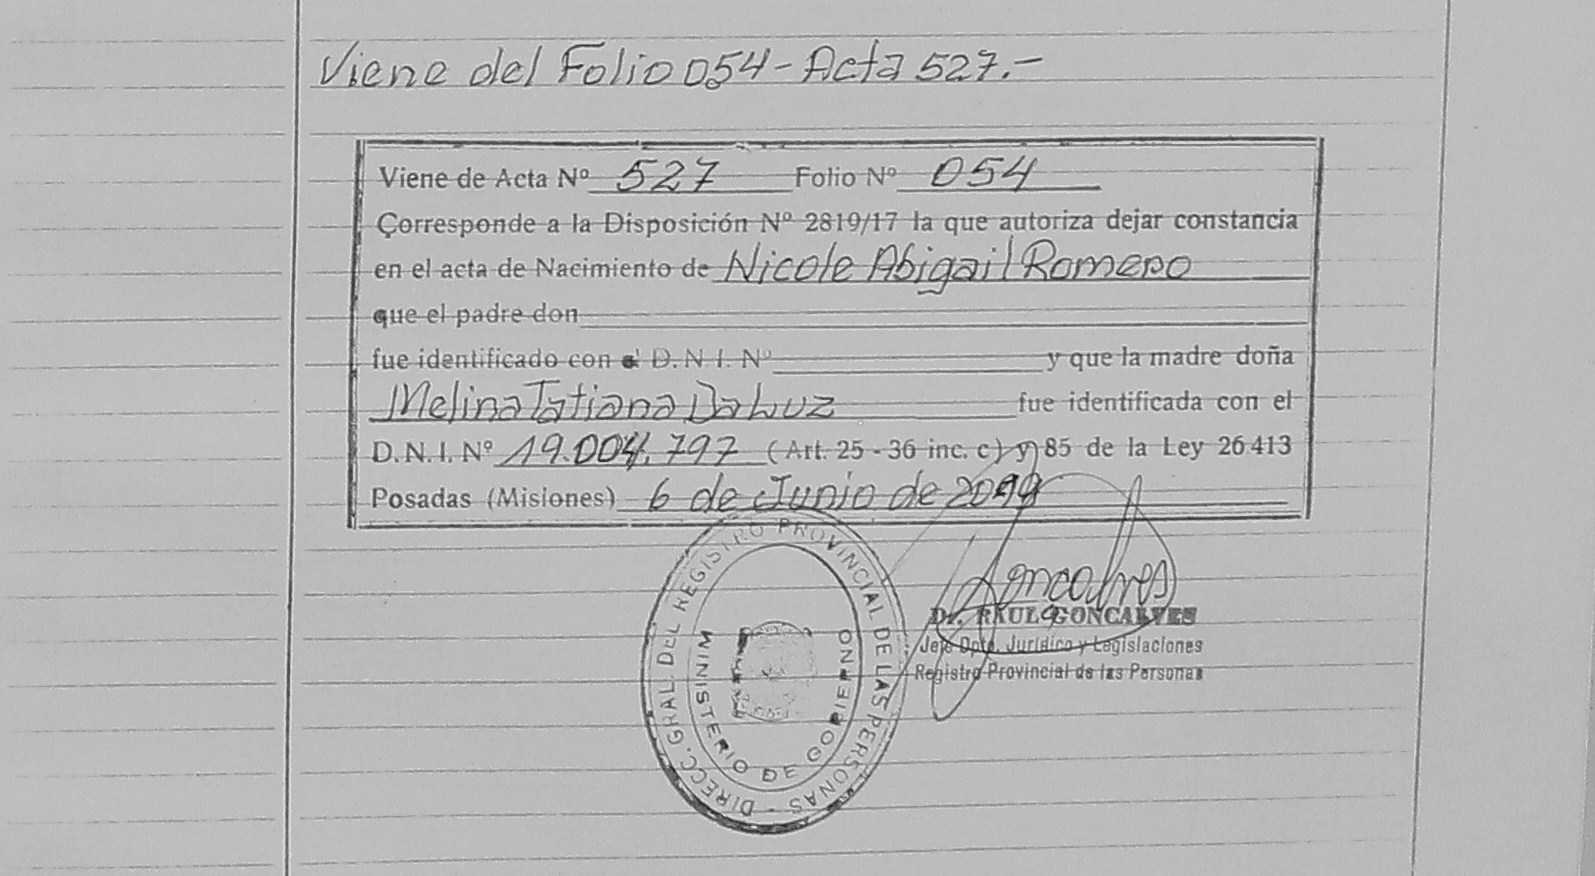 Viene del Folio 054 - Acta 527.-
Viene de Acta Nº 527 Folio Nº 054
Corresponde a la Disposición Nº 2819/17 la que autoriza dejar constancia
en el acta de Nacimiento de Nicole Abigail Romero
que el padre don
fue identificado con el D.N.I. Nº y que la madre doña
Melina Tatiana Da Luz fue identificada con el
D.N.I. Nº 19.004.797 (Art. 25 - 36 inc. c) y 85 de la Ley 26413
Posadas (Misiones) 6 de Junio de
Goncalves
Dr. RAUL GONCALVES
Jefe Dpto. Jurídico y Legislaciones
Registro Provincial de las Personas
DIRECC. GRAL. DEL REGISTRO PROVINCIAL DE LAS PERSONAS -
MINISTERIO DE GOBIERNO